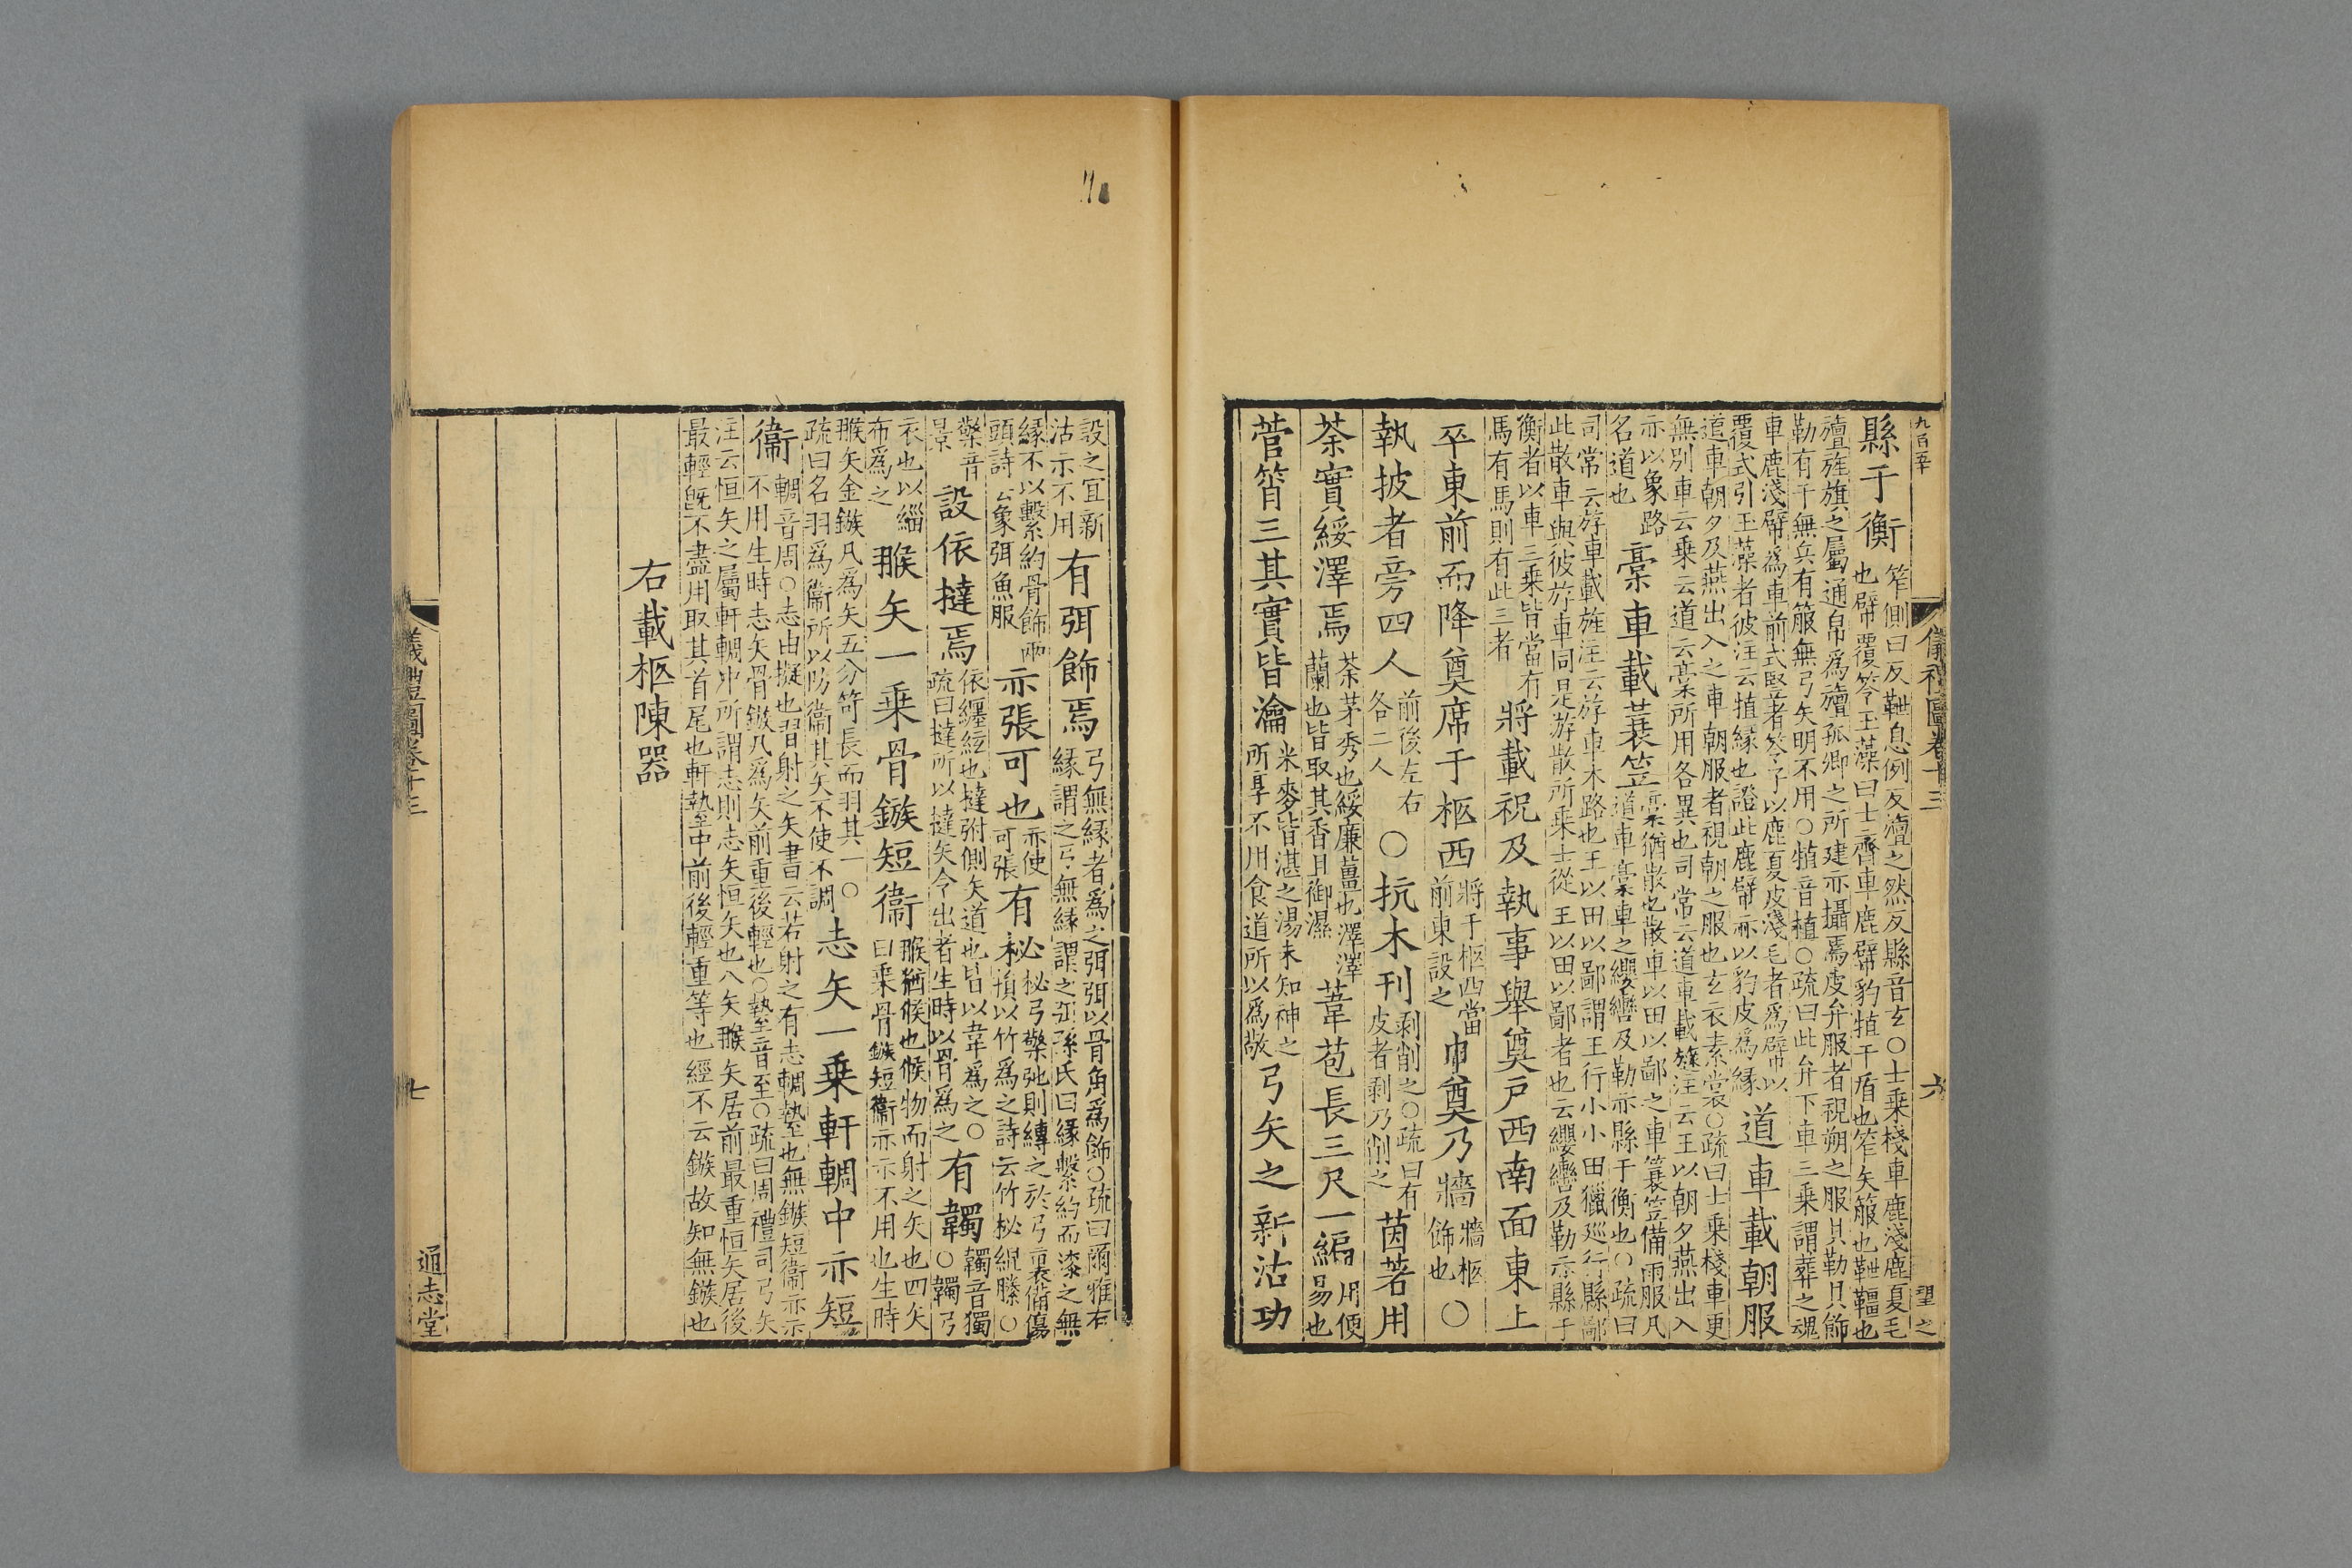 九百五十 儀禮圖卷十三 六 望之
縣于衡
笮側曰反靾息例反旜之然反縣音玄○士乗棧車鹿淺鹿夏毛
也幦覆笭玉藻曰士齊車鹿幦豹犆干盾也笮矢箙也靾韁也
旜旌旗之屬通帛爲旜孤卿之所建亦攝焉皮弁服者視朔之服貝勒貝飾
勒有干無兵有箙無弓矢明不用○犆音植○疏曰此弁下車三乗謂葬之魂
車鹿淺幦爲車前式竪者笭子以鹿夏皮淺毛者爲幦以
覆式引玉藻者彼注云犆縁也證此鹿幦亦以豹皮爲縁
道車載朝服
道車朝夕及燕出入之車朝服者視朝之服也玄衣素裳○疏曰士乗棧車更
無別車云乗云道云槀所用各異也司常云道車載旞注云王以朝夕燕出入
亦以象路
名道也
槀車載蓑笠
槀猶散也散車以田以鄙之車蓑笠備雨服凡
道車槀車之纓轡及勒亦縣于衡也○疏曰
司常云斿車載旌注云斿車木路也王以田以鄙謂王行小小田獵巡行縣鄙
此散車與彼斿車同是游散所乗士從王以田以鄙者也云纓轡及勒亦縣于
衡者以車三乗皆當有
馬有馬則有此三者
將載祝及執事舉奠戸西南面東上
卒東前而降奠席于柩西
將于柩西當
前東設之
巾奠乃牆
牆柩
飾也
○
執披者旁四人
前後左右
各二人
○抗木刊
剥削之○疏曰有
皮者剥乃削之
茵著用
荼實綏澤焉
荼茅秀也綏廉薑也澤澤
蘭也皆取其香且御濕
葦苞長三尺一編
用便
易也
菅筲三其實皆瀹
米麥皆湛之湯未知神之
所享不用食道所以爲敬
弓矢之新沽功
設之宜新
沽示不用
有弭飾焉
弓無縁者爲之弭弭以骨角爲飾○疏曰爾雅有
縁謂之弓無縁謂之弭孫氏曰縁繫約而漆之無
縁不以繫約骨飾兩
頭詩云象弭魚服
亦張可也
亦使
可張
有柲
柲弓檠弛則縳之於弓裏備傷
損以竹爲之詩云竹柲緄縢○
檠音
景
設依撻焉
依纏絃也撻弣側矢道也皆以韋爲之○
疏曰撻所以撻矢令出者生時以骨爲之
有韣
韣音獨
○韣弓
衣也以緇
布爲之
猴矢一乗骨鏃短衞
猴猶候也候物而射之矢也四矢
曰乗骨鏃短衞亦示不用也生時
猴矢金鏃凡爲矢五分笴長而羽其一○
疏曰名羽爲衞所以防衞其矢不使不調
志矢一乗軒輖中亦短
衞
輖音周○志由擬也習射之矢書云若射之有志輖摯也無鏃短衞亦示
不用生時志矢骨鏃凡爲矢前重後輕也○摯音至○疏曰周禮司弓矢
注云恒矢之屬軒輖中所謂志則志矢恒矢也八矢猴矢居前最重恒矢居後
最輕旣不盡用取其首尾也軒摯中前後輕重等也經不云鏃故知無鏃也
右載柩陳器
儀禮圖卷十三 七 通志堂